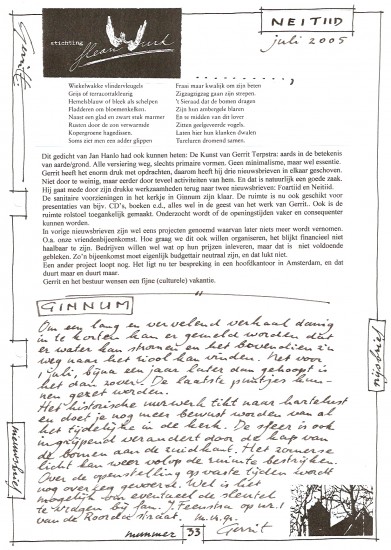 NEITIID
juli 2005
Gerrit
stichting
Wiekelwakke vlindervleugels
Grijs of terracottakleurig
Hemelsblauw of bleek als schelpen
Fladderen om bloemenkelken.
Naast een glad en zwart stuk marmer
Rusten door de zon verwarmde
Kopergroene hagedissen.
Soms ziet men een adder glippen
Fraai maar kwalijk om zijn beten
Zigzagzigzag gaan zijn strepen.
't Sieraad dat de bomen dragen
Zijn hun ambergele blaren
En te midden van dit lover
Zitten geelgeveerde vogels.
Laten hier hun klanken dwalen
Tureluren dromend samen.
Dit gedicht van Jan Hanlo had ook kunnen heten: De Kunst van Gerrit Terpstra: aards in de betekenis
van aarde/grond. Alle versiering weg, slechts primaire vormen. Geen minimalisme, maar wel essentie.
Gerrit heeft het enorm druk met opdrachten, daarom heeft hij drie nieuwsbrieven in elkaar geschoven.
Niet door te weinig, maar eerder door teveel activiteiten van hem. En dat is natuurlijk een goede zaak.
Hij gaat mede door zijn drukke werkzaamheden terug naar twee nieuwsbrieven: Foartiid en Neitiid.
De sanitaire voorzieningen in het kerkje in Ginnum zijn klaar. De ruimte is nu ook geschikt voor
presentaties van bijv. CD's, boeken e.d., alles wel in de geest van het werk van Gerrit.. Ook is de
ruimte rolstoel toegankelijk gemaakt. Onderzocht wordt of de openingstijden vaker en consequenter
kunnen worden.
In vorige nieuwsbrieven zijn wel eens projecten genoemd waarvan later niets meer wordt vernomen.
O.a. onze vriendenbijeenkomst. Hoe graag we dit ook willen organiseren, het blijkt financieel niet
haalbaar te zijn. Bedrijven willen wel wat op hun prijzen inleveren, maar dat is niet voldoende
gebleken. Zo'n bijeenkomst moet eigenlijk budgettair neutraal zijn, en dat lukt niet.
Een ander project loopt nog. Het ligt nu ter bespreking in een hoofdkantoor in Amsterdam, en dat
duurt maar en duurt maar.
Gerrit en het bestuur wensen een fijne (culturele) vakantie.
GINNUM
Om een lang en vervelend verhaal danig
in te korten kan er gemeld worden dat
er water kan stromen en het bovendien z'n
weg naar het riool kan vinden. Net voor
1 juli, bijna een jaar later dan gehoopt is
het dan zover. De laatste puntjes kun-
nen gezet worden.
Het historische uurwerk tikt naar hartelust
en doet je nog meer bewust worden van al
het tijdelijke in de kerk. De sfeer is ook
ingrijpend veranderd door de kap van
de bomen aan de zuidkant. Het zomerse
licht kan weer volop de ruimte bestrijken.
Over de openstelling op vaste tijden wordt
nog overleg gevoerd. Wel is het
mogelijk om eventueel de sleutel
te vragen bij fam. J. Feenstra op nr. 1
van de Roordastraat. m.vr.gr.
Gerrit
nijsbrief
nummer 33